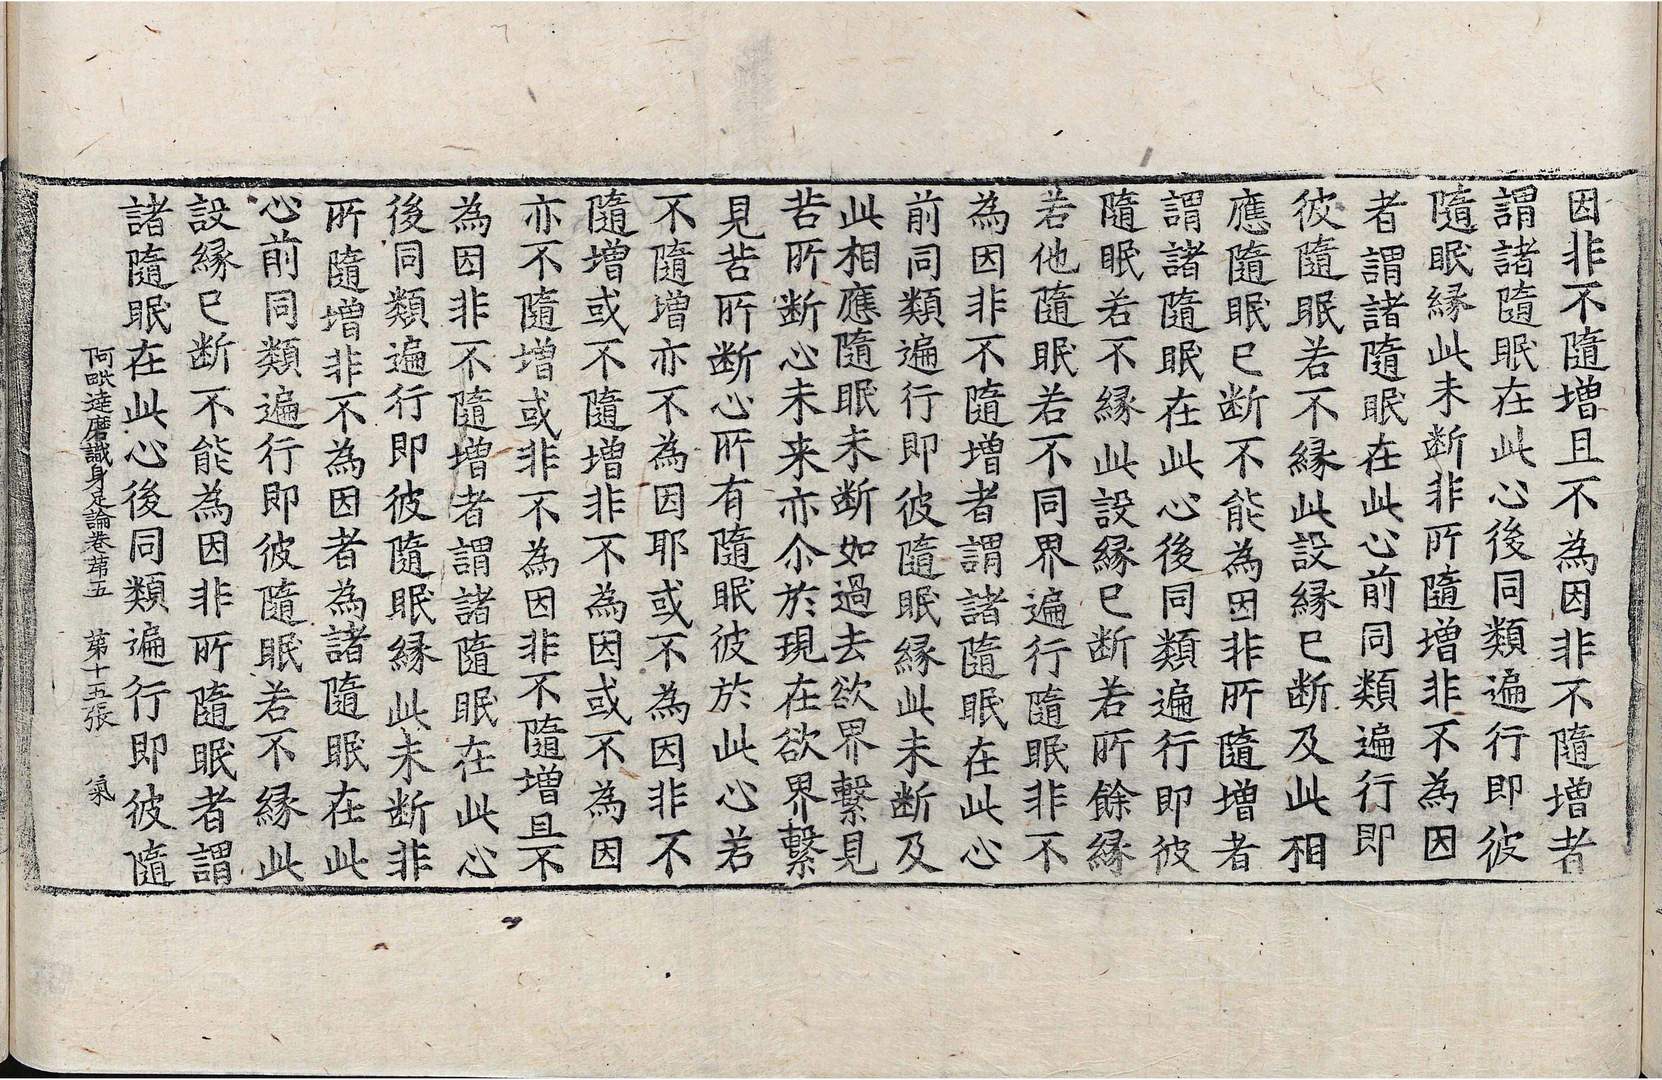 因非不隨增且不為因非不隨增者
謂諸隨眠在此心後同類遍行即彼
隨眠緣此未断非所隨增非不為因
者謂諸隨眠在此心前同類遍行即
彼隨眠若不緣此設緣已断及此相
應隨眠已断不能為因非所隨增者
謂諸隨眠在此心後同類遍行即彼
隨眠若不緣此設緣已断若所餘緣
若他隨眠若不同界遍行隨眠非不
為因非不隨增者謂諸隨眠在此心
前同類遍行即彼隨眠緣此未断及
此相應隨眠未断如過去欲界繫見
苦所断心未来亦尒於現在欲界繫
見苦所断心所有隨眠彼於此心若
不隨增亦不為因耶或不為因非不
隨增或不隨增非不為因或不為因
亦不隨增或非不為因非不隨增且不
為因非不隨增者謂諸隨眠在此心
後同類遍行即彼隨眠緣此未断非
所隨增非不為因者為諸隨眠在此
心前同類遍行即彼隨眠若不緣此
設緣已断不能為因非所隨眠者謂
諸隨眠在此心後同類遍行即彼隨
阿毗達磨識身足論卷苐五　第十五張　氣